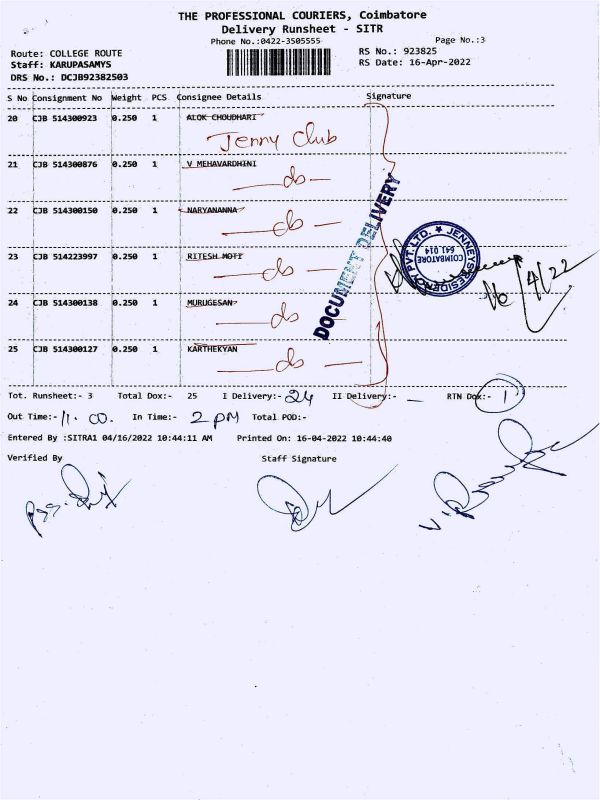 THE PROFESSIONAL COURIERS, Coimbatore
Delivery Runsheet - SITR
Phone No.:0422-3505555
Page No.:3
Route: COLLEGE ROUTE
RS No.: 923825
Staff: KARUPASAMYS
RS Date: 16-Apr-2022
DRS No.: DCJB92382503
S No Consignment No Weight PCS Consignee Details Signature
20 CJB 514300923 0.250 1 ALOK CHOUDHARI
Jenny Club
21 CJB 514300876 0.250 1 V MEHAVARDHINI
do
22 CJB 514300150 0.250 1 NARYANANNA
do
23 CJB 514223997 0.250 1 RITESH MOTI
do
24 CJB 514300138 0.250 1 MURUGESAN
do
25 CJB 514300127 0.250 1 KARTHEKYAN
do
DOCUMENT DELIVERY
JENNEYS RESIDENCY PVT. LTD. ★
COIMBATORE
641 014
16/4/22
Tot. Runsheet:- 3 Total Dox:- 25 I Delivery:- 24 II Delivery:- — RTN Dox:- 1
Out Time:- 11.00. In Time:- 2 PM Total POD:-
Entered By :SITRA1 04/16/2022 10:44:11 AM Printed On: 16-04-2022 10:44:40
Verified By Staff Signature